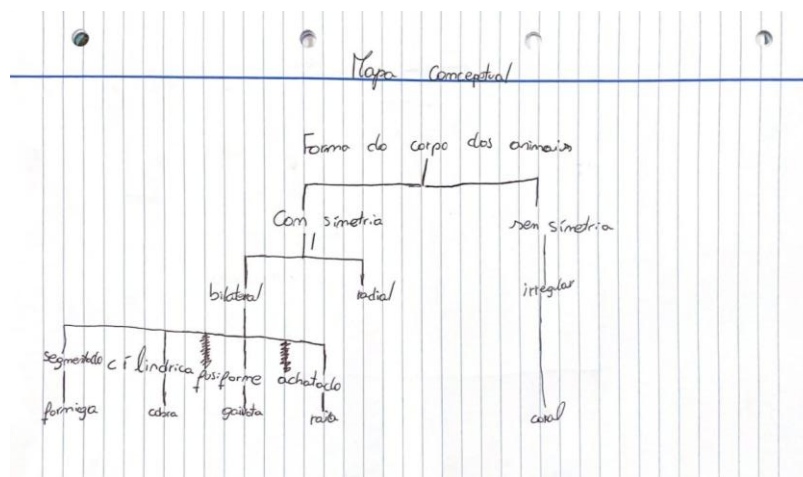 Mapa Conceptual
Forma do corpo dos animais
Com simetria sem simetria
bilateral radial irregular
segmentado cilindrica fusiforme achatado
formiga cobra gaivota raia coral